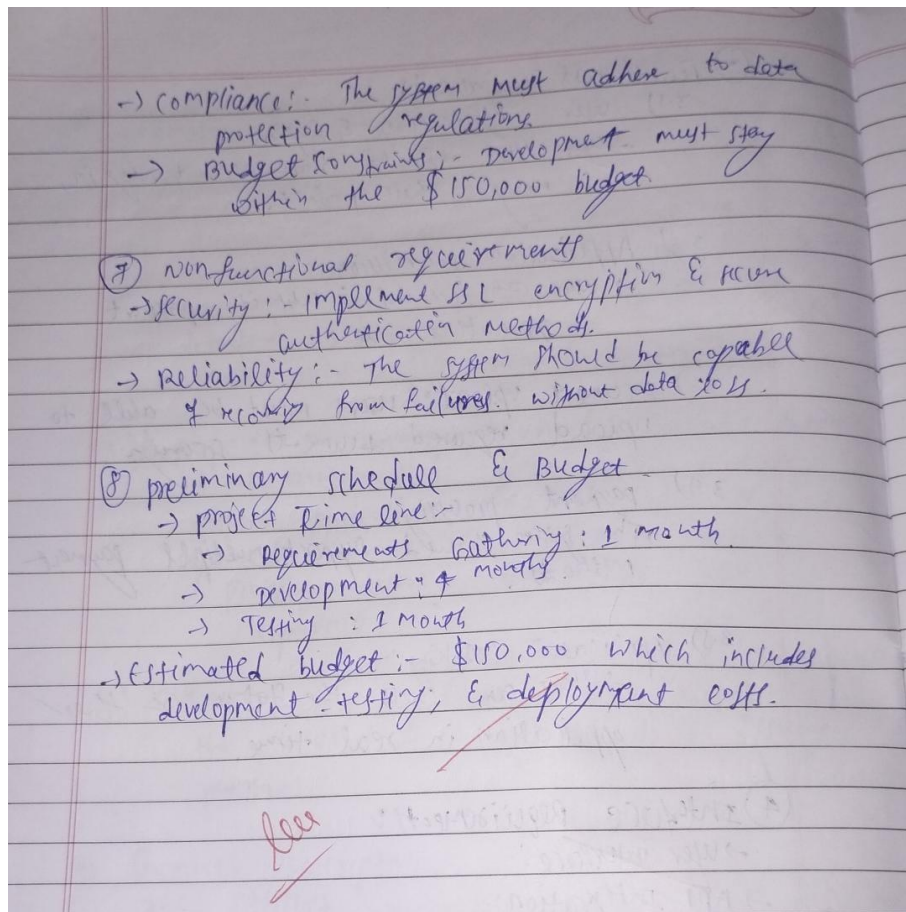 -> compliance:- The system must adhere to data
protection regulations.
-> Budget Constraints:- Development must stay
within the $150,000 budget.
⑦ Nonfunctional requirements
-> security:- Implement SSL encryption & secure
authentication methods.
-> Reliability:- The system should be capable
of from failures. without data loss.
⑧ preliminary schedule & Budget
-> project Time line:-
-> Requirements Gathering : 1 month
-> Development : 4 months.
-> Testing : 1 Month
-> Estimated budget:- $150,000 which includes
development testing, & deployment costs.